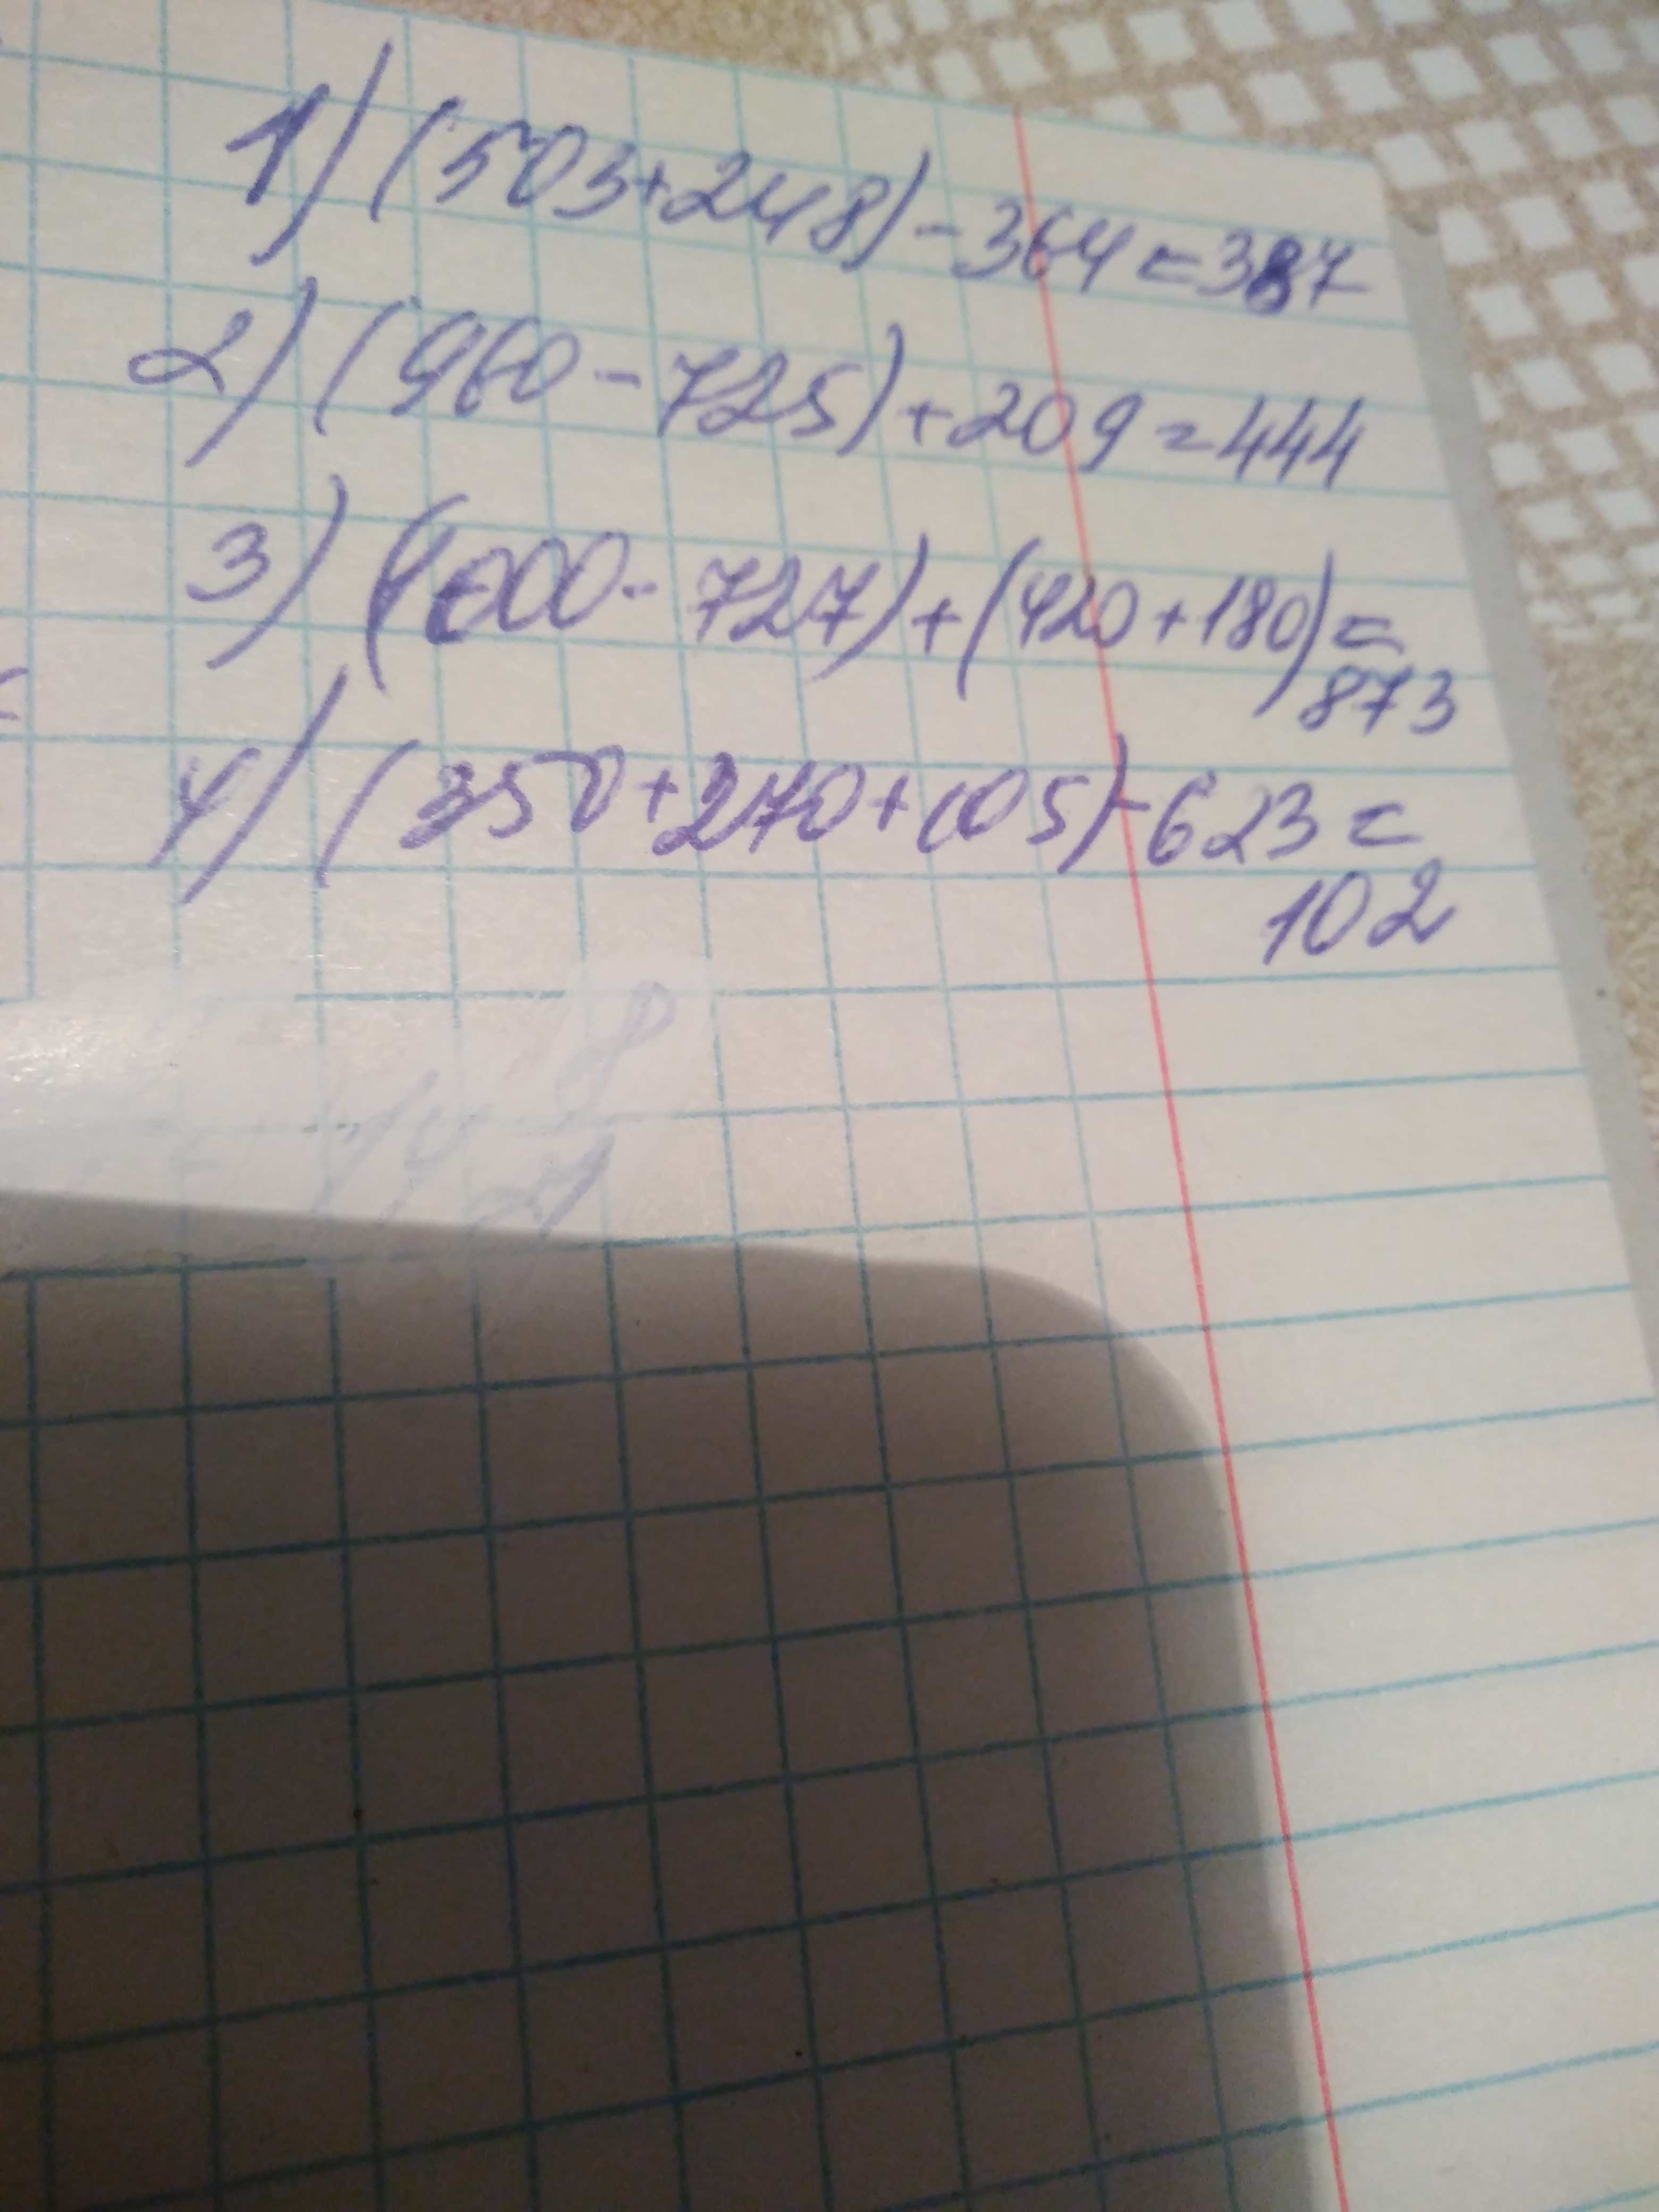 1) (503+248)-364=387
2) (960-725)+209=444
3) (1000-727)+(420+180)=
873
4) (350+270+105)-623=
102